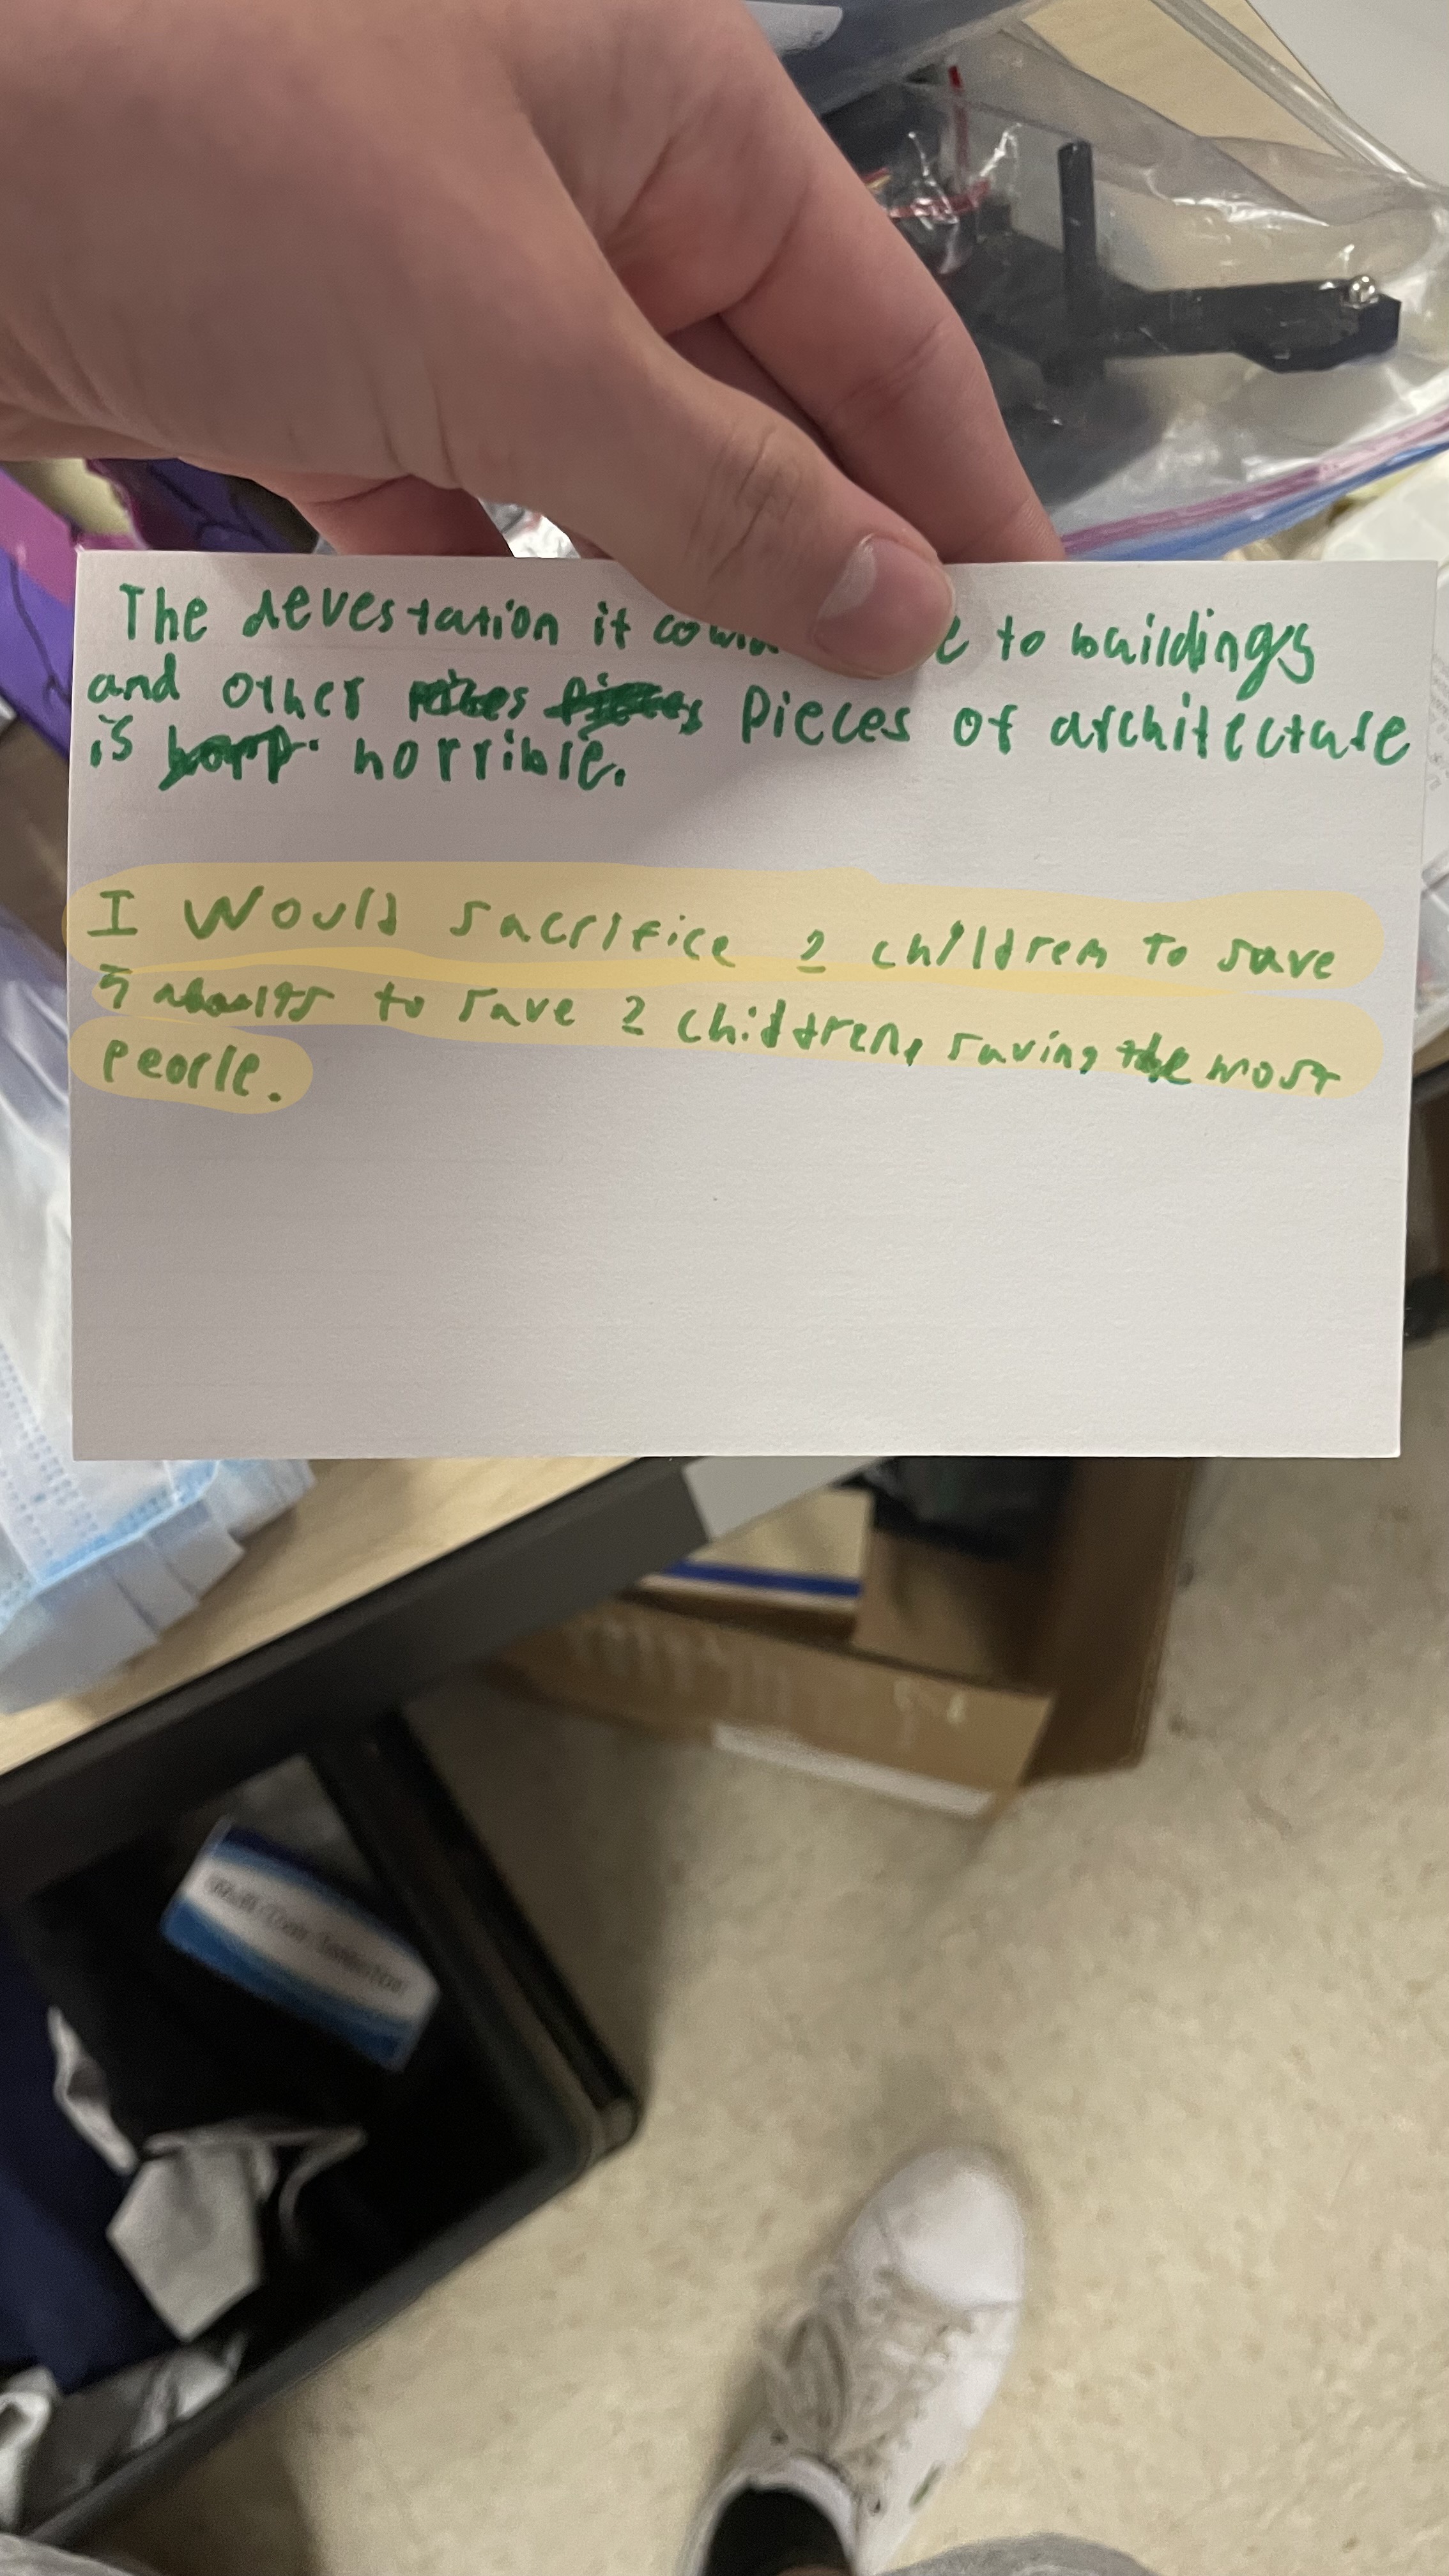 The devestation it to buildings
and other Pieces of architecture
is horrible.
I Would sacrifice 2 children to save
5 to save 2 children, saving the most
people.